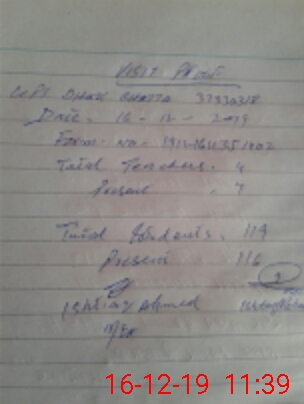 VISIT PROOF
GGPS DHOK CHATTA 37330318
Date: 16 - 12 - 2019
Form: No:
Total Teachers. 4
Present . 4
Total Students. 119
Present . 116
Ishtiaq Ahmed
16-12-19 11:39